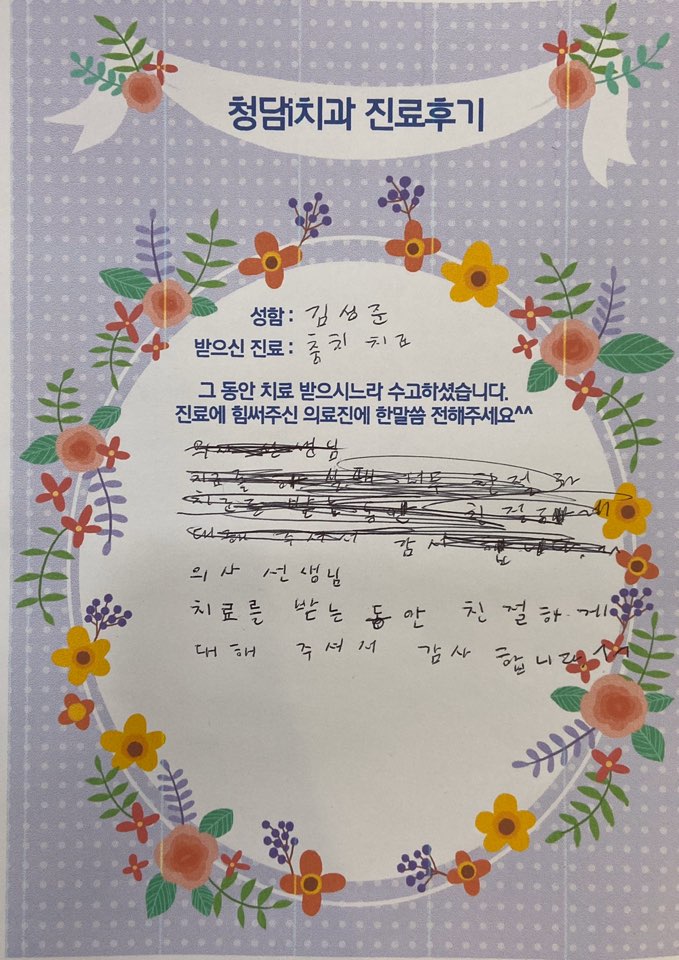 청담i치과 진료후기
성함 : 김성준
받으신 진료 : 충치 치료
그 동안 치료 받으시느라 수고하셨습니다.
진료에 힘써주신 의료진에 한말씀 전해주세요^^
의사 선생님
치료를 받는 동안 친절하게
대해 주셔서 감사 합니다.^^